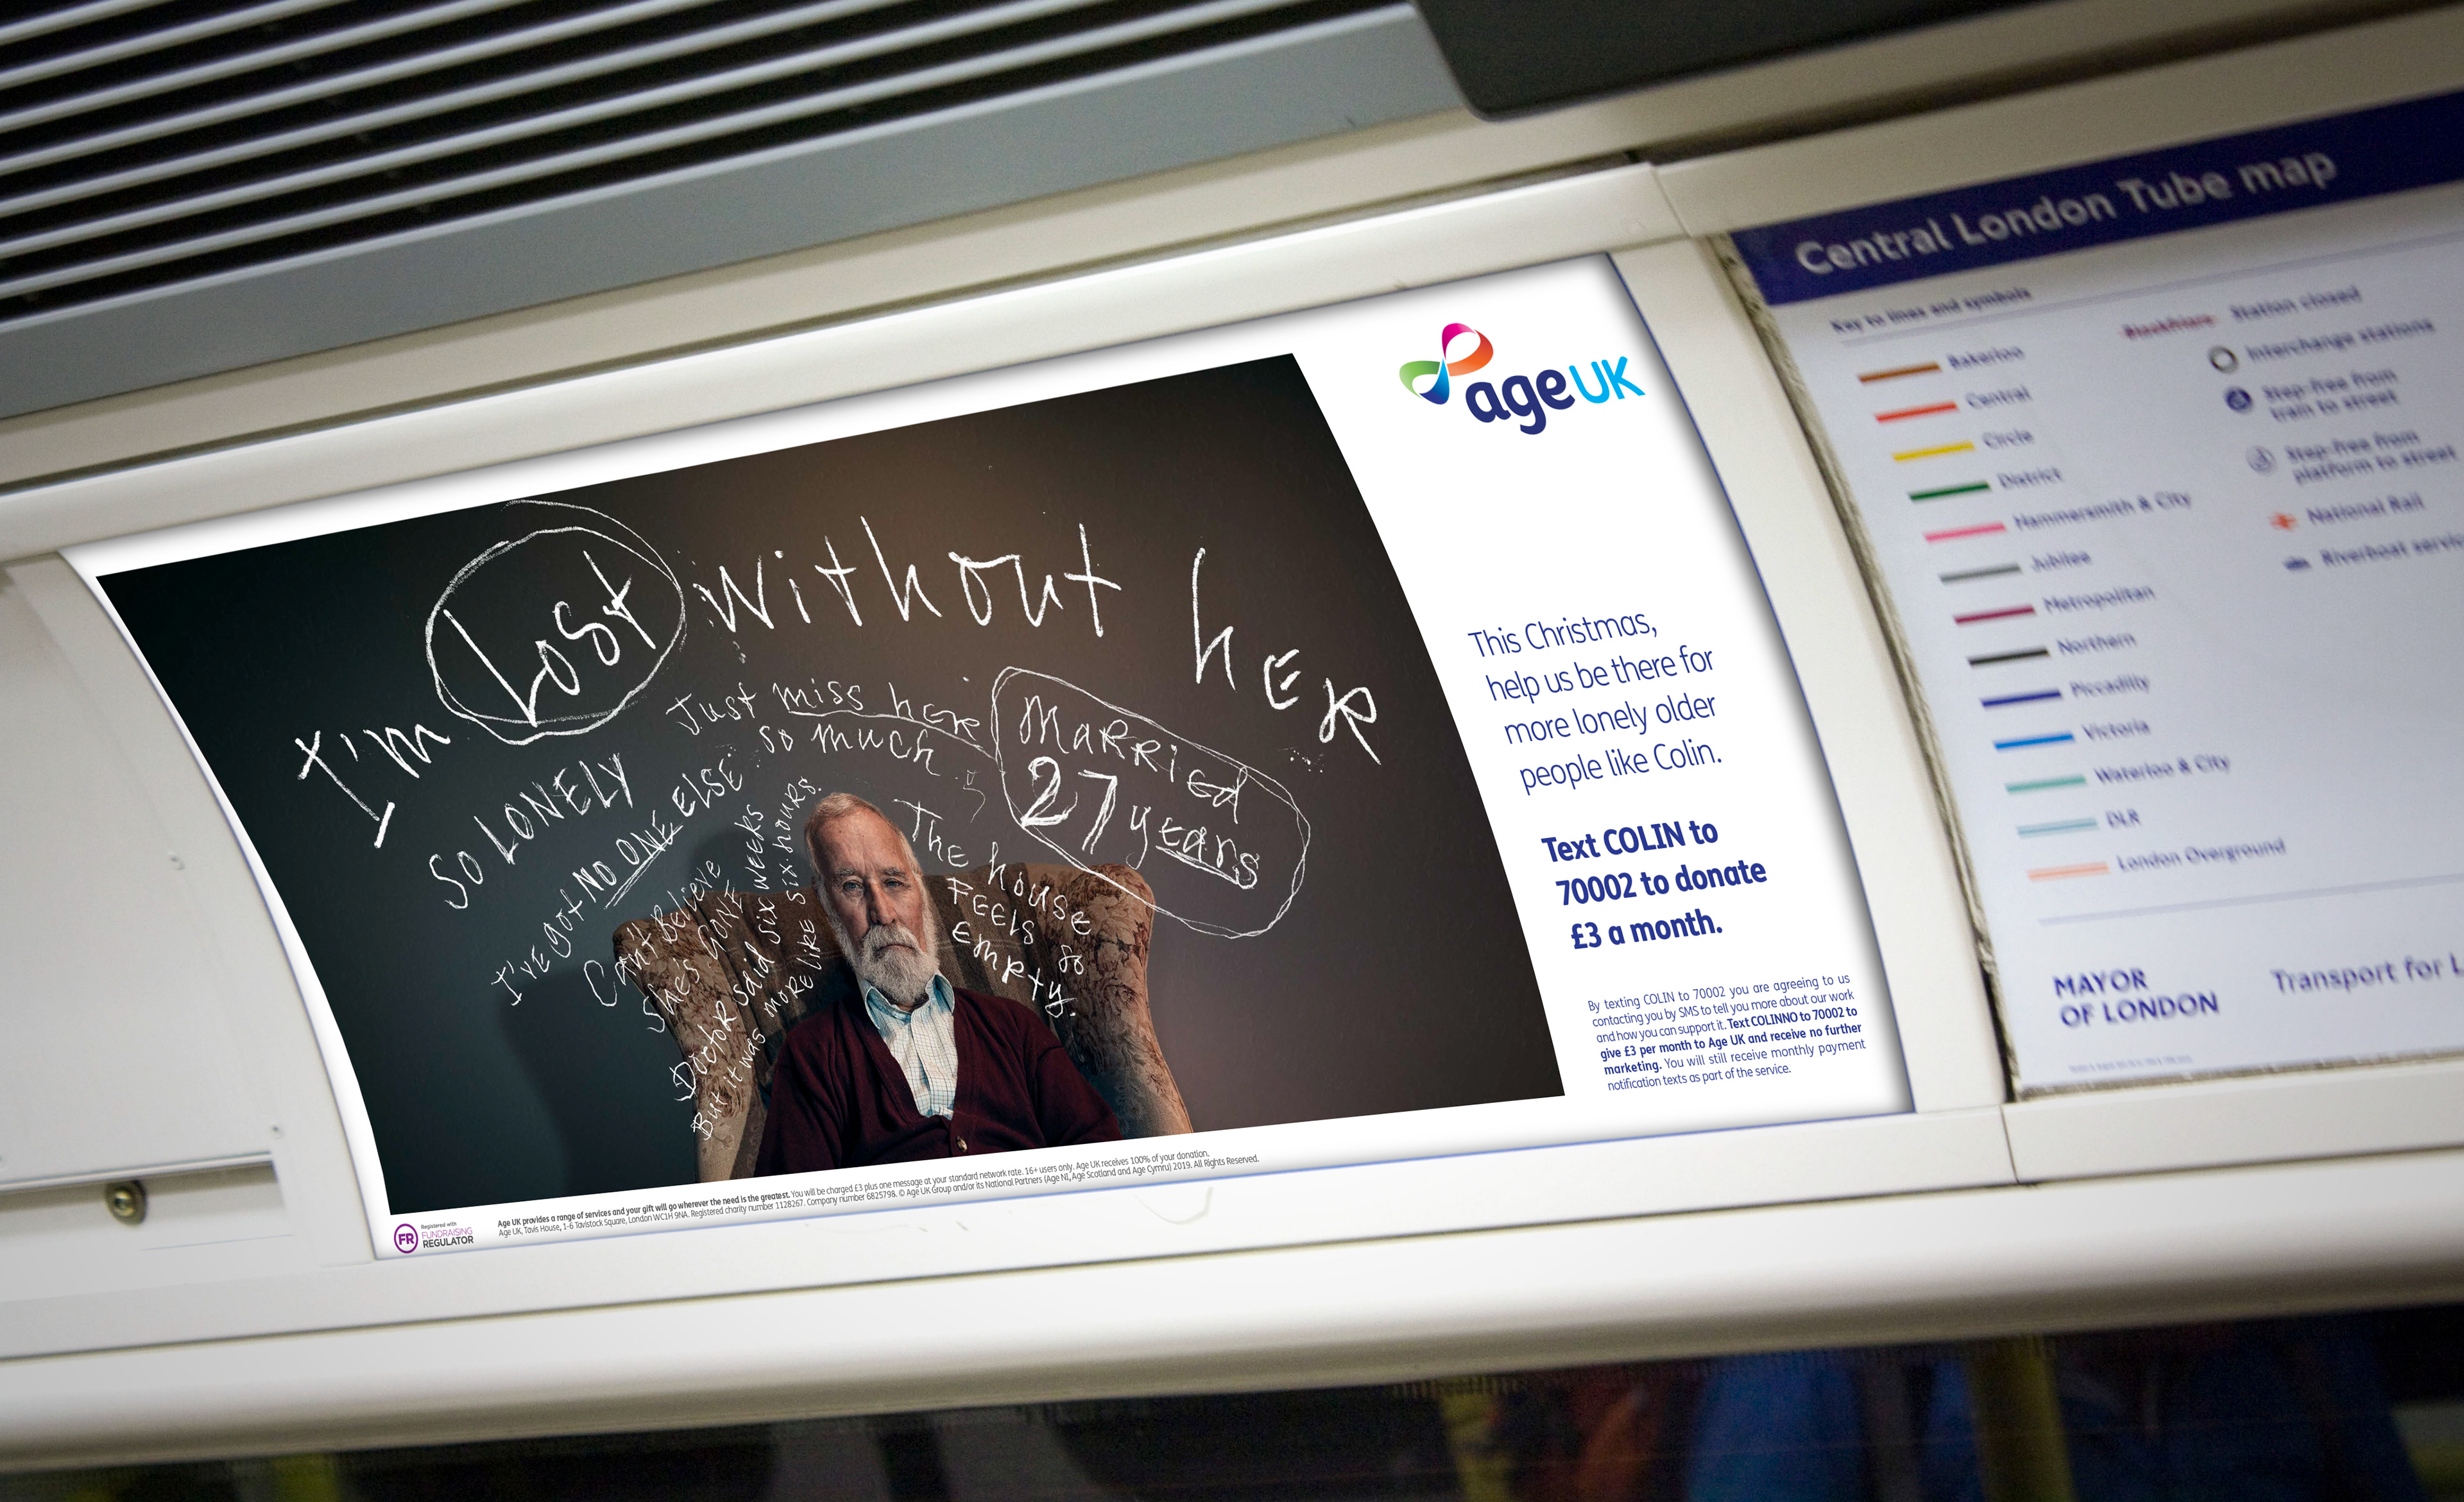 I'm Lost without hER
Just miss hER
so much
MARRiEd
27 years
SO LONELY
I'VE got NO ONE ELSE
Can't BEliEVE
She's GONE
Doctor said six WEEKS
But it was moRE LIKE six hours.
ThE housE
FEELS so
EmpTy.
ageUK
This Christmas,
help us be there for
more lonely older
people like Colin.
Text COLIN to
70002 to donate
£3 a month.
By texting COLIN to 70002 you are agreeing to us
contacting you by SMS to tell you more about our work
and how you can support it. Text COLINNO to 70002 to
give £3 per month to Age UK and receive no further
marketing. You will still receive monthly payment
notification texts as part of the service.
FR
Registered with
FUNDRAISING
REGULATOR
Age UK provides a range of services and your gift will go wherever the need is the greatest. You will be charged £3 plus one message at your standard network rate. 16+ users only. Age UK receives 100% of your donation.
Age UK, Tavis House, 1-6 Tavistock Square, London WC1H 9NA. Registered charity number 1128267. Company number 6825798. © Age UK Group and/or its National Partners (Age NI, Age Scotland and Age Cymru) 2019. All Rights Reserved.
Central London Tube map
Key to lines and symbols
Bakerloo
Central
Circle
District
Hammersmith & City
Jubilee
Metropolitan
Northern
Piccadilly
Victoria
Waterloo & City
DLR
London Overground
Blackfriars
Station closed
Interchange stations
Step-free from
train to street
Step-free from
platform to street
National Rail
Riverboat servic
MAYOR
OF LONDON
Transport for L